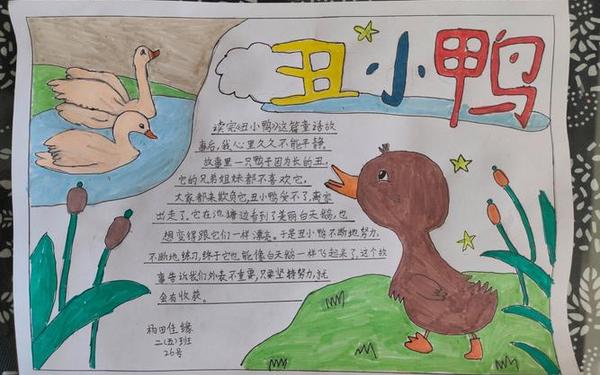 丑小鸭
读完《丑小鸭》这篇童话故
事后,我心里久久不能平静。
故事里一只鸭子因为长的丑,
它的兄弟姐妹都不喜欢它。
大家都来欺负它,丑小鸭受不了,离家
出走了。它在池塘边看到了美丽白天鹅,也
想变得跟它们一样漂亮。于是丑小鸭不断地努力,
不断地练习,终于它也能像白天鹅一样飞起来了,这个故
事告诉我们外表不重要,只要坚持努力,就
会有收获。
田佳缘
二(五)班
26号